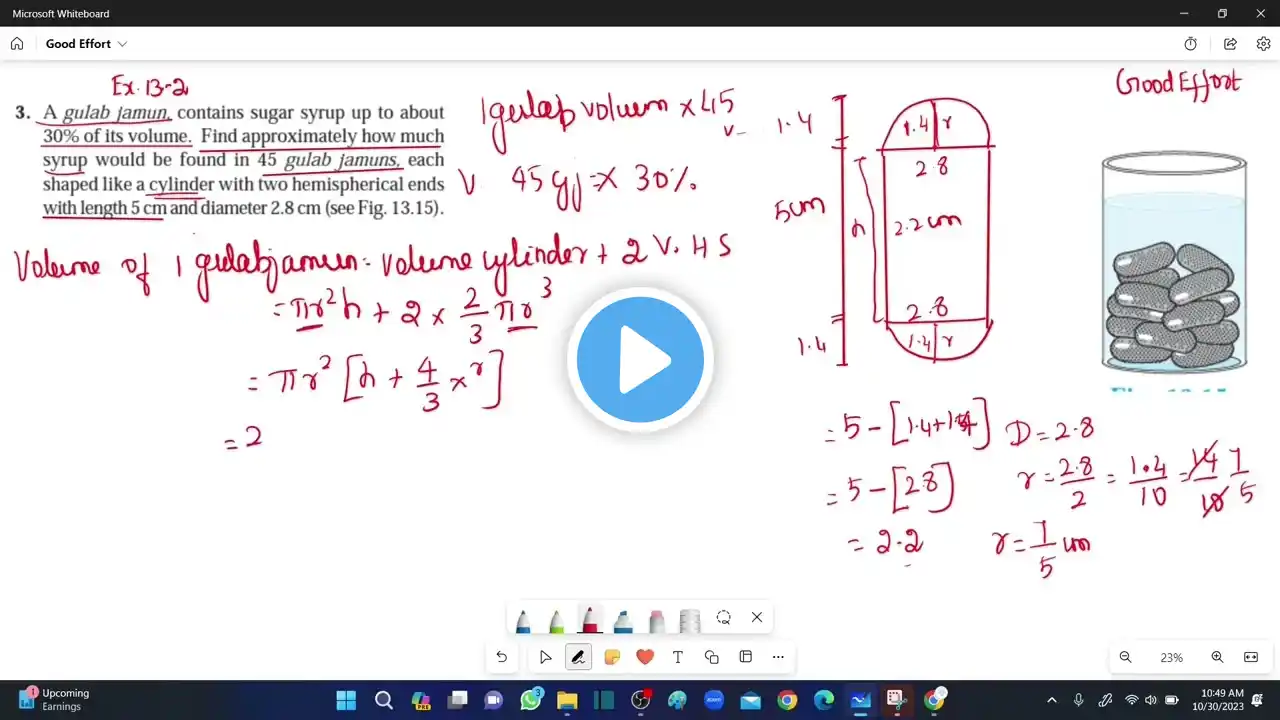 Microsoft Whiteboard
Good Effort
Ex. 13-2
3. A gulab jamun, contains sugar syrup up to about
30% of its volume. Find approximately how much
syrup would be found in 45 gulab jamuns, each
shaped like a cylinder with two hemispherical ends
with length 5 cm and diameter 2.8 cm (see Fig. 13.15).
1 gulab volum × 45
V. 45 gj = × 30%
Volume of 1 gulabjamun = volume cylinder + 2 V. H S
= πr²h + 2 × 2/3 πr³
= πr² [h + 4/3 × r]
= 2
1.4
5cm
1.4
h
1.4 r
2.8
2.2 cm
2.8
1.4 r
Good Effort
= 5 - [1.4+1.4]
= 5 - [2.8]
= 2.2
D = 2.8
r = 2.8/2 = 1.4/10 = 14/10 7/5
r = 7/5 cm
23%
Upcoming
Earnings
10:49 AM
10/30/2023